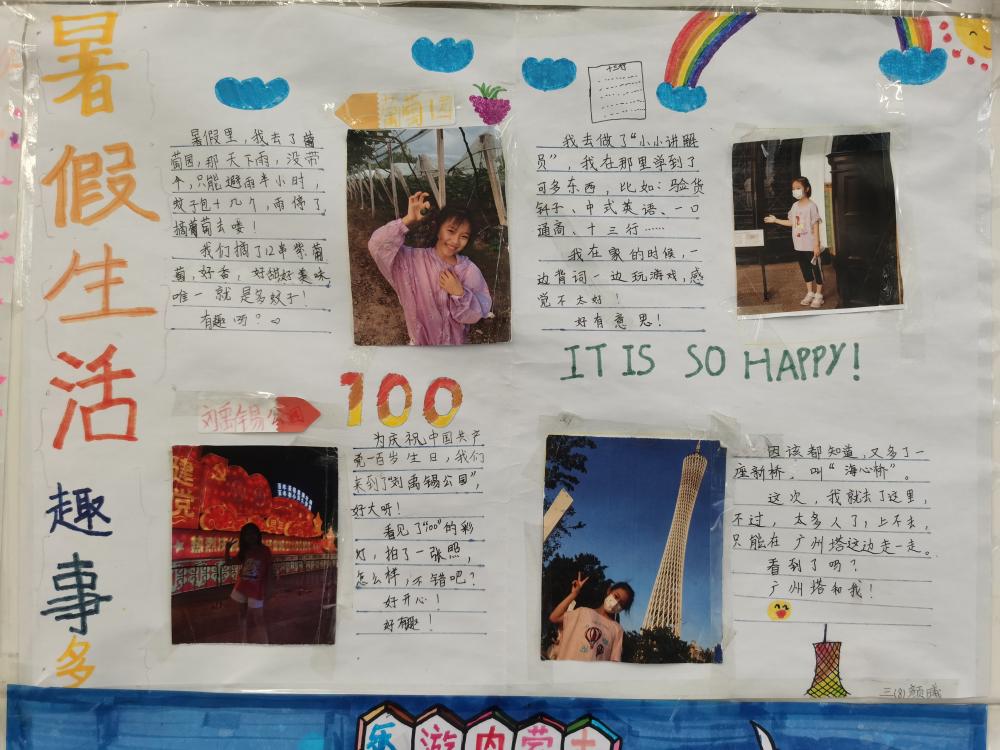 暑假生活趣事多
葡萄园
暑假里，我去了葡
萄园，那天下雨，没带
伞，只能避雨半小时，
蚊子包十几个，雨停了，
摘葡萄去喽！
我们摘了12串紫葡
萄，好香，好甜好美味，
唯一就是多蚊子！
有趣吧？
十三行
我去做了“小小讲解
员”，我在那里学到了
可多东西，比如：验货
斜子、中式英语、一口
通商、十三行……
我在家的时候，一
边背词一边玩游戏，感
觉不太好！
好有意思！
IT IS SO HAPPY!
刘禹锡公园
100
为庆祝中国共产
党一百岁生日，我们
来到了“刘禹锡公园”，
好大呀！
看见了“100”的彩
灯，拍了一张照，
怎么样，不错吧？
好开心！
好有趣！
建
党
因该都知道，又多了一
座新桥，叫“海心桥”。
这次，我就去了这里，
不过，太多人了，上不去，
只能在广州塔这边走一走。
看到了吗？
广州塔和我！
三(8)颜曦
乐游内蒙古